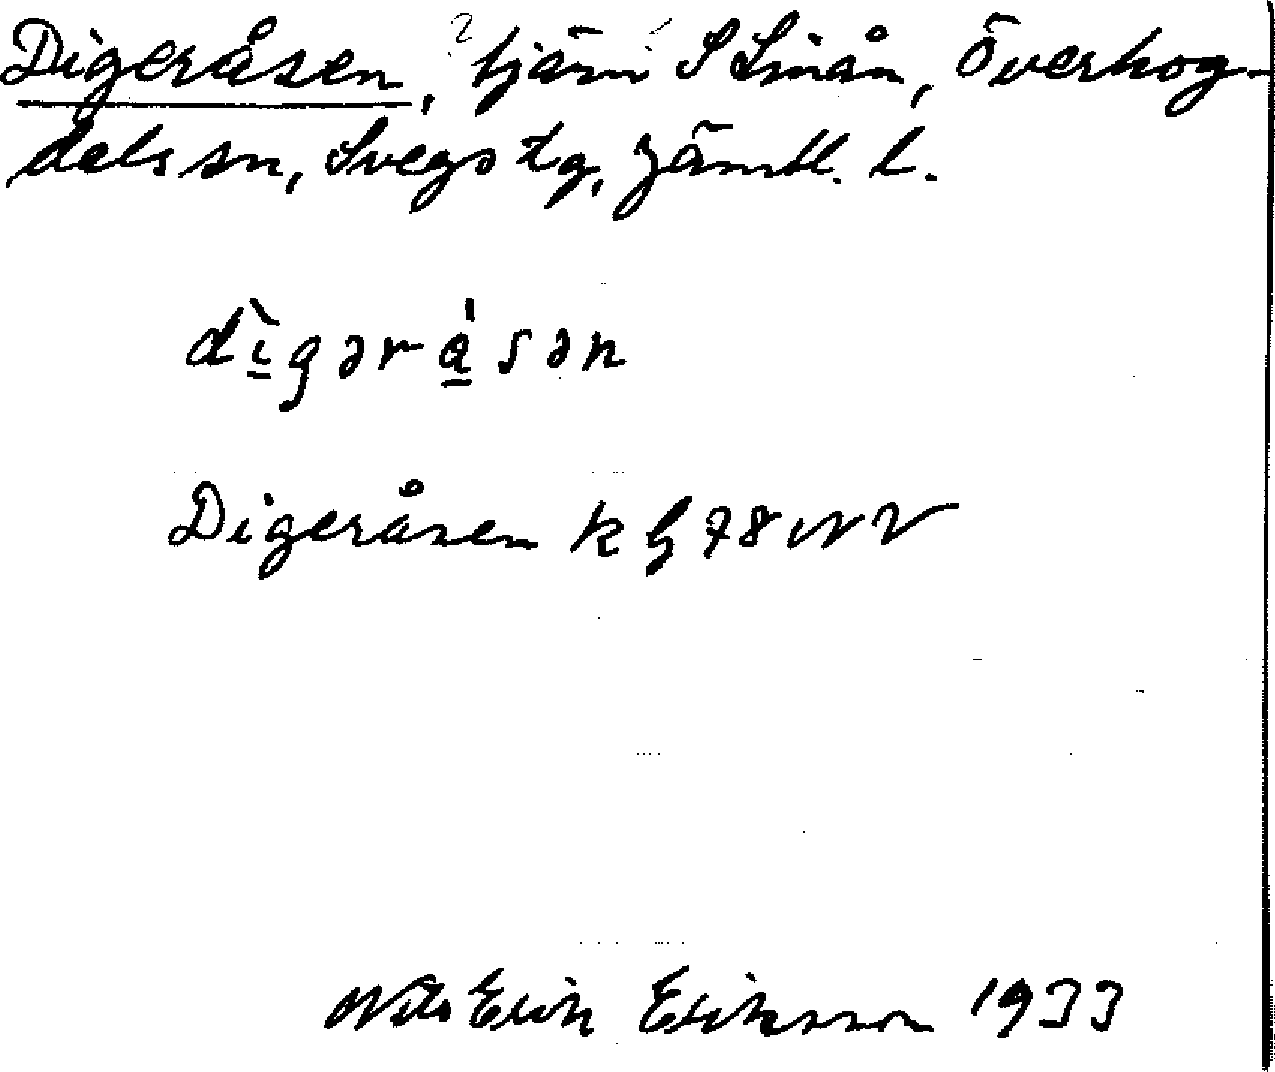 Digeråsen, ? tjärn S Småån, Överhog-
dels sn, Svegs tg, Jämtl. l.
dìgəråsən
Digeråsen k bl 78 NV
Nils Erik Eriksson 1933